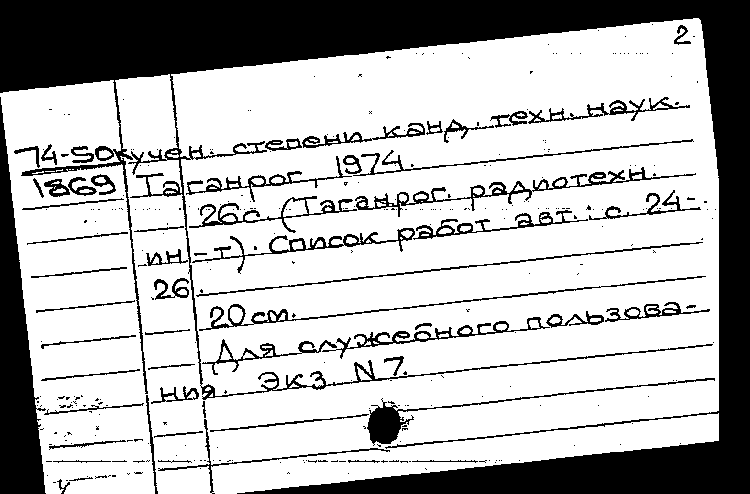 2
74-5Dк учен. степени канд. техн. наук.
1869 Таганрог, 1974.
26с. (Таганрог. радиотехн.
ин-т). Список работ авт.: с. 24-
26.
20 см.
Для служебного пользова-
ния. Экз. N 7.